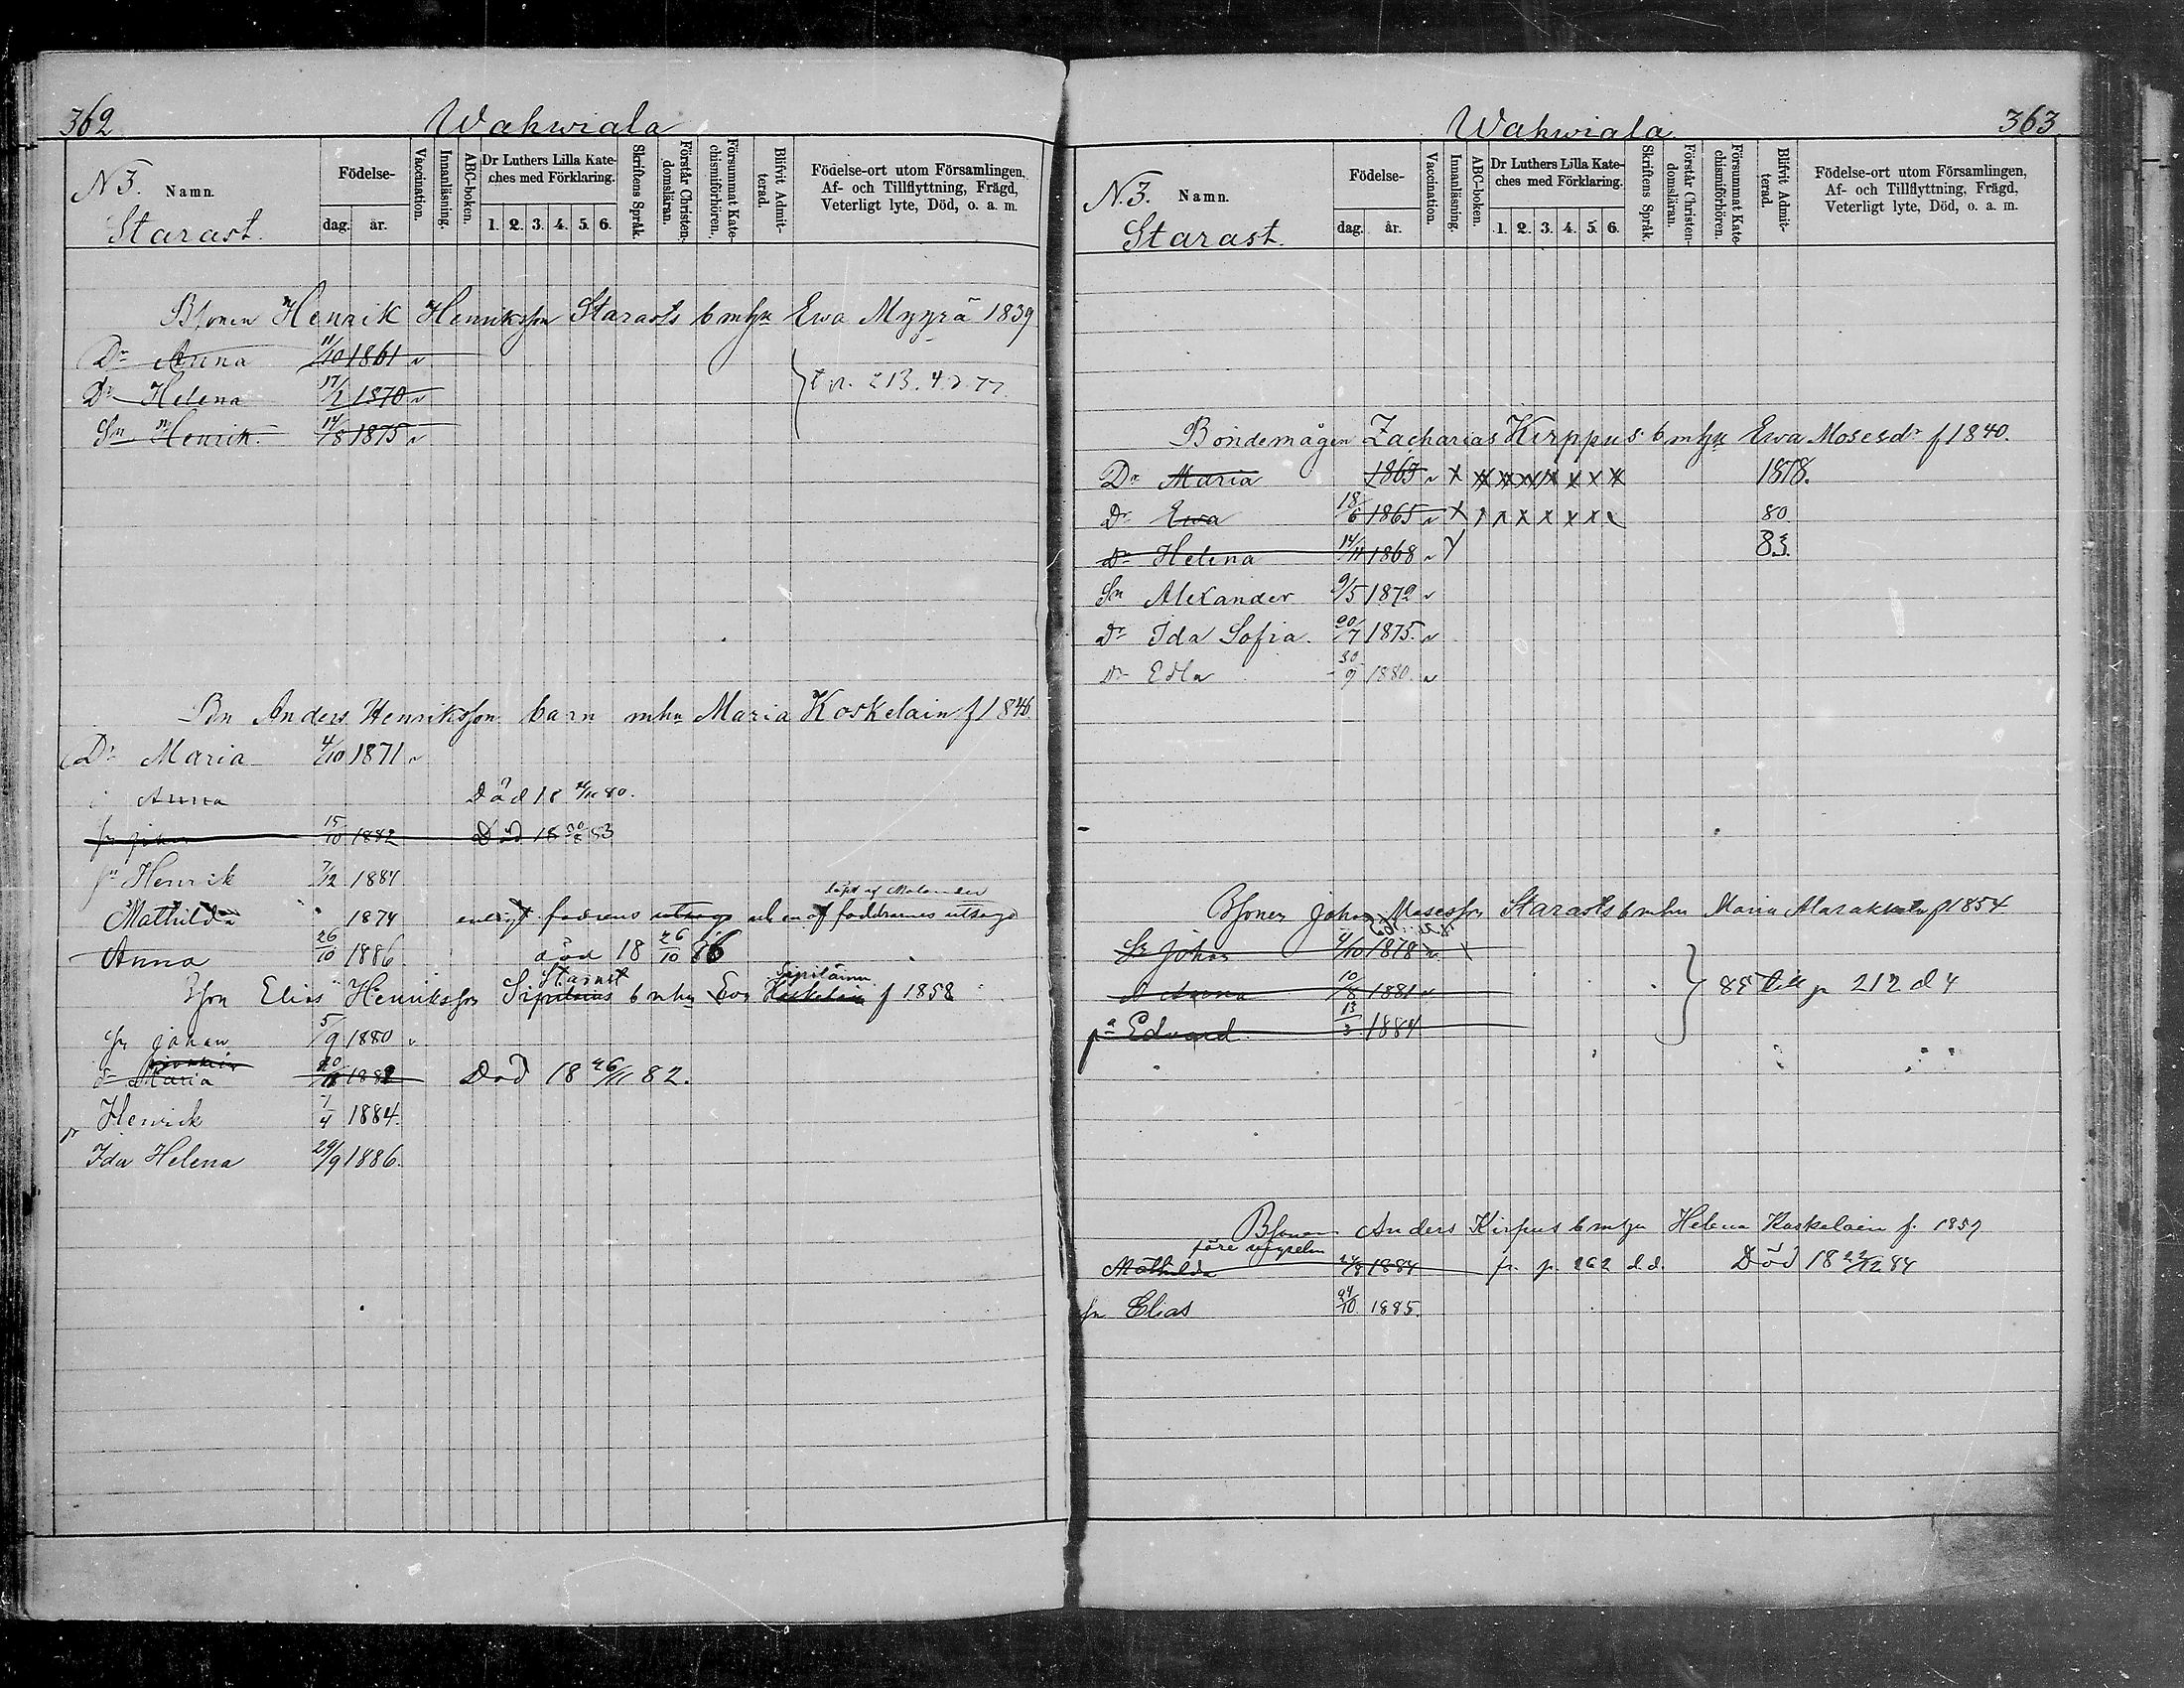 362
Wahwiala
N 3. Namn.
Starast.
Födelse-
dag. år.
Vaccination.
Innanläsning.
ABC-boken.
Dr Luthers Lilla Kate-
ches med Förklaring.
1. 2. 3. 4. 5. 6.
Skriftens Språk.
Förstår Christen-
domsläran.
Försummat Kate-
chismiförhören.
Blifvit Admit-
terad.
Födelse-ort utom Församlingen,
Af- och Tillflyttning, Frägd,
Veterligt lyte, Död, o. a. m.
Bsonen Henrik Henriksson Starasts b mhu Ewa Myyrä 1839
Dr Anna 11/10 1861 v
Dr Helena 17/2 1870 v
Sn Henrik 14/8 1875 v
213. 4
Bn Anders Henriksson barn mhu Maria Koskelain f 1846
Dr Maria 4/10 1871 v
Anna Död 18 80.
15/10 1882 Död 18 30/8 83
sn Henrik 7/12 1884
Mathilda 1874 enligt fadrens utsago
Anna 26/10 1886. död 18 26/10 86
Starast Sipiläinen
Bson Elias Henriksson b mhu Eva Koskelain f 1858
Sn Johan 5/9 1880 v
Dr Maria 1882 Död 18 26/11 82.
sn Henrik 7/4 1884.
Ida Helena 29/9 1886.
Wahwiala
363
N. 3. Namn.
Starast.
Födelse-
dag. år.
Vaccination.
Innanläsning.
ABC-boken.
Dr Luthers Lilla Kate-
ches med Förklaring.
1. 2. 3. 4. 5. 6.
Skriftens Språk.
Förstår Christen-
domsläran.
Försummat Kate-
chismiförhören.
Blifvit Admit-
terad.
Födelse-ort utom Församlingen,
Af- och Tillflyttning, Frägd,
Veterligt lyte, Död, o. a. m.
Bondemågen Zacharias Kirppus b mhu Ewa Mosesdr f 1840.
Dr Maria 1863 v x x x x x x x x 1878.
Dr Ewa 18/6 1865 v x x x x x x x 80.
Dr Helena 14/11 1868 v 83.
Sn Alexander 9/5 1872 v
Dr Ida Sofia. 20/7 1875. v
Dr Edla 30/9 1880. v
Bsonen Johan Mosesson Starasts b mhu Maria f 1854
Sn Johan 4/10 1878 v
Dr Anna 10/8 1881 v
85 till p 212 d 4
Edvard. 13/3 1884
Bsonen Anders Kirpus b mhu Helena Koskelain f. 1859
före vigseln
Mathilda 24/8 1884 fr. p. 262 d.d. Död 18 22/12 84
sn Elias 24/10 1885.